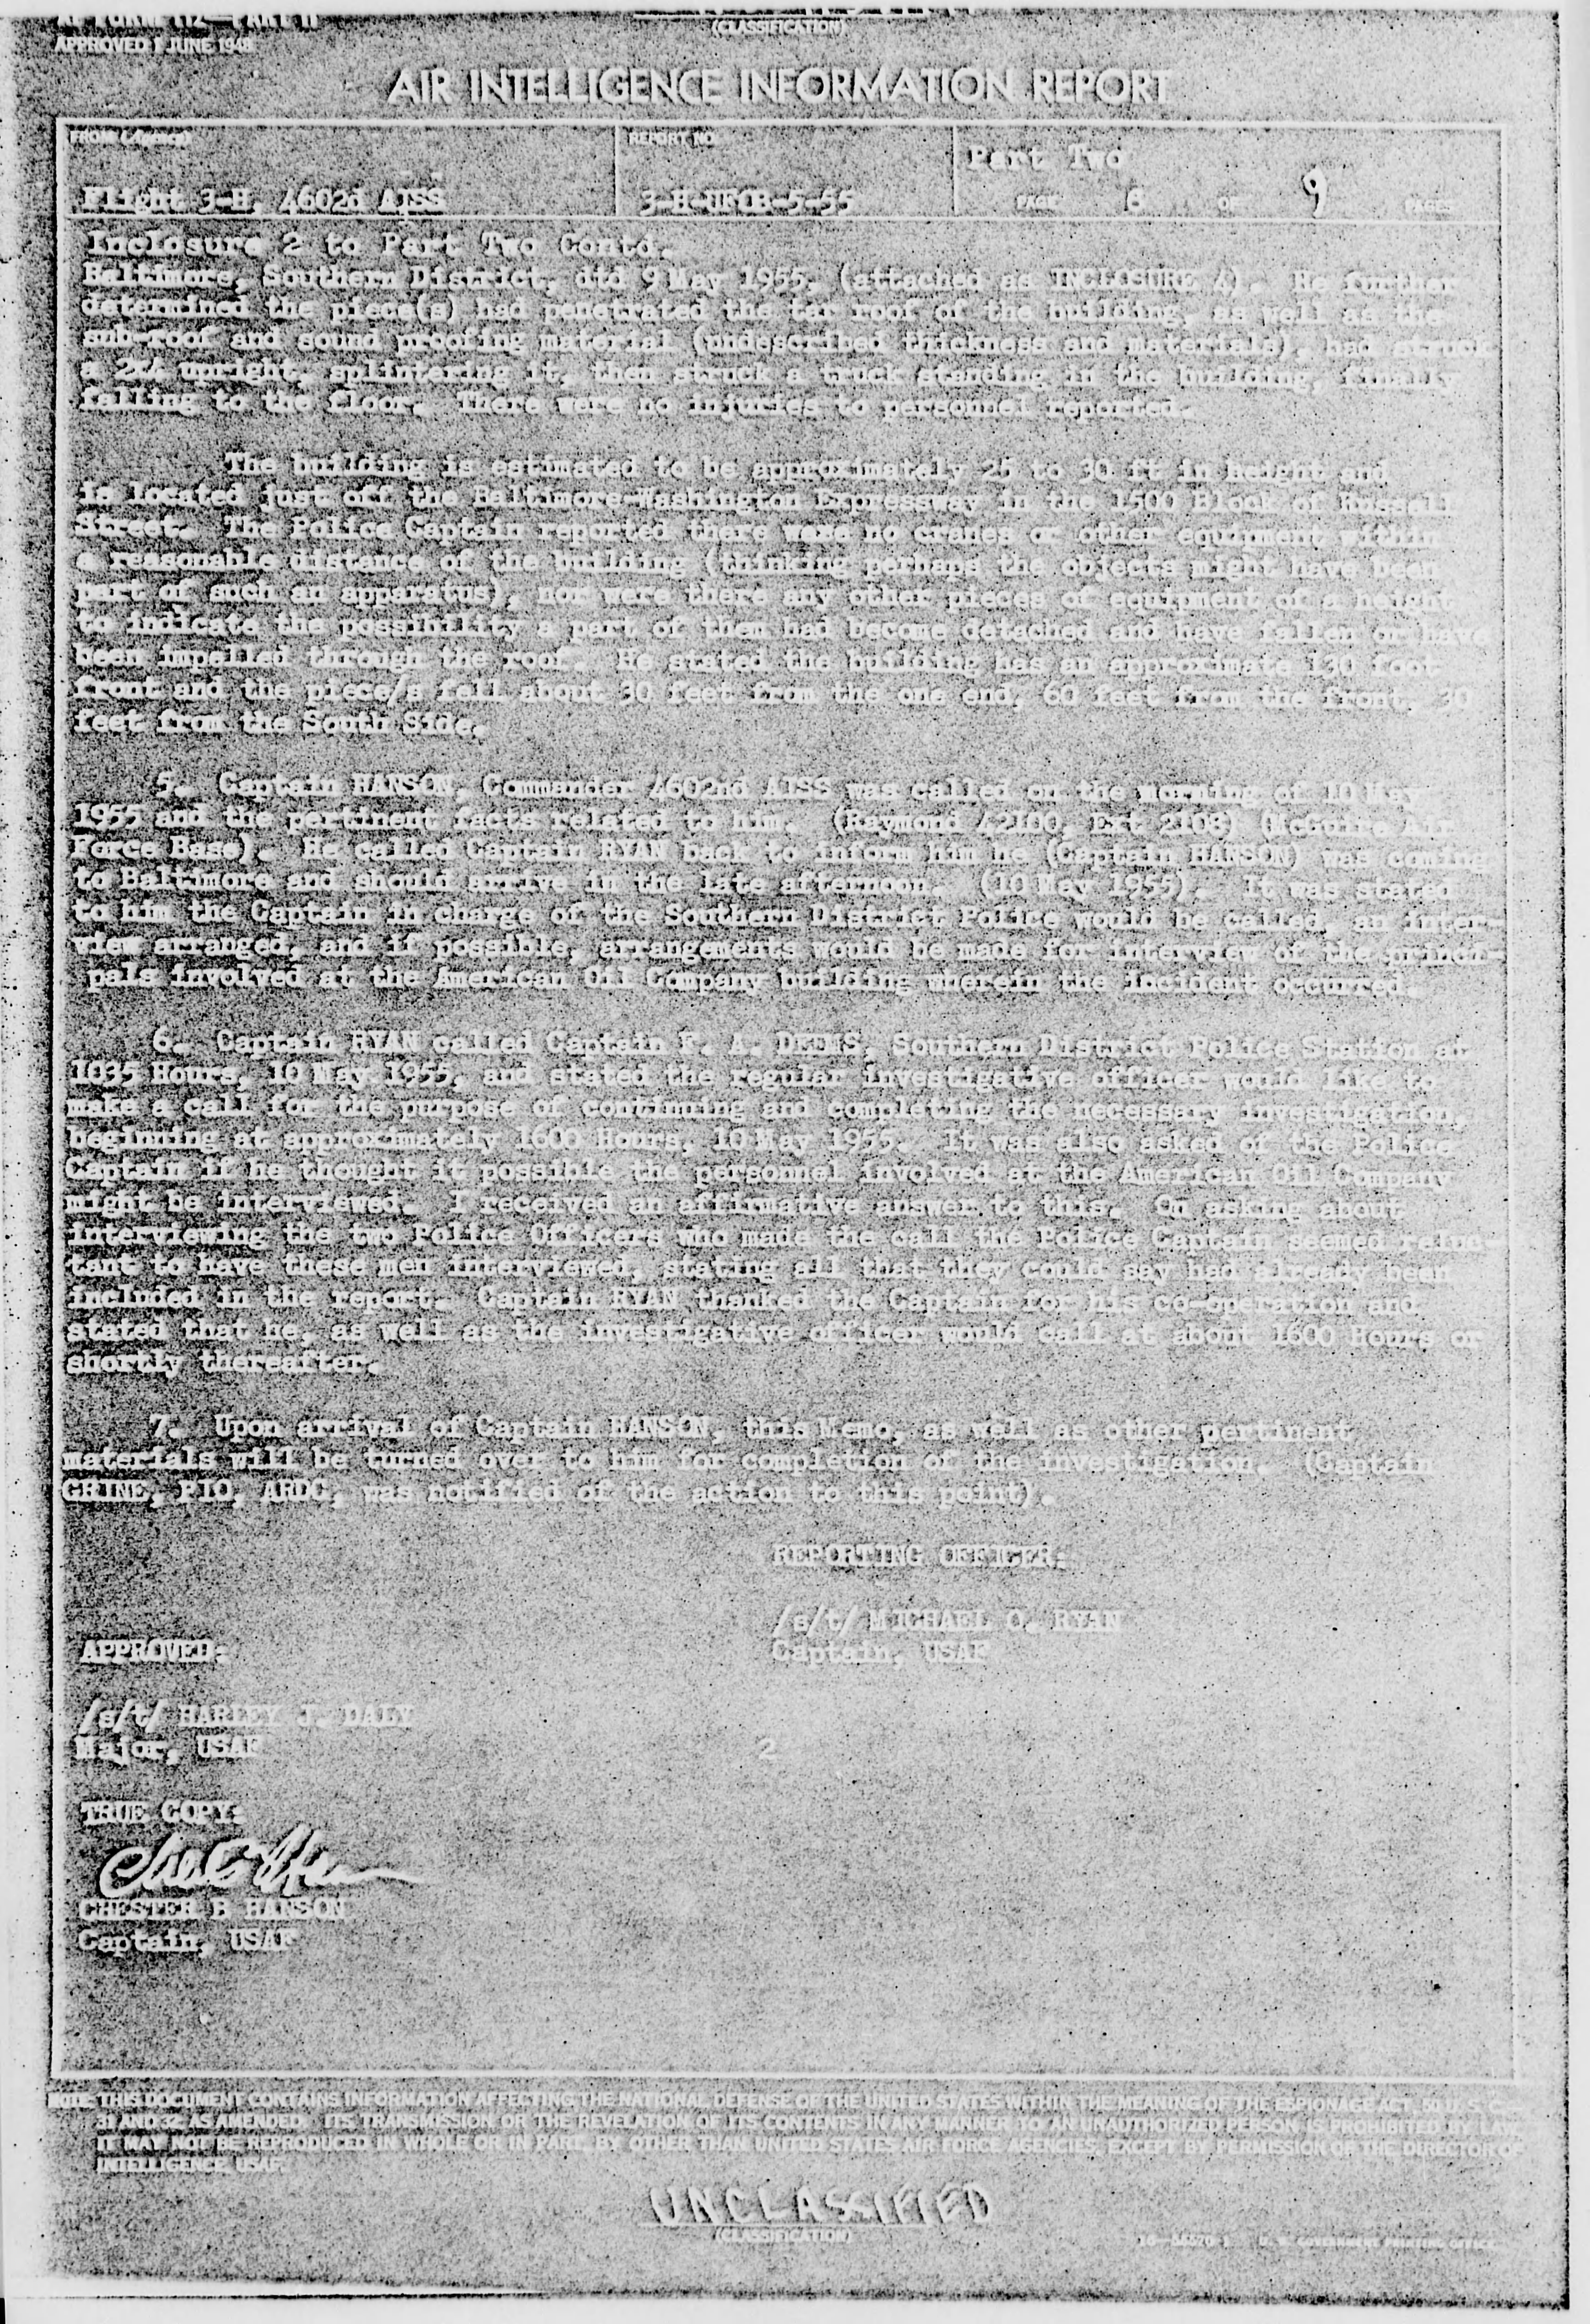 AF FORM 112—PART II
APPROVED 1 JUNE 1948
(CLASSIFICATION)
AIR INTELLIGENCE INFORMATION REPORT
FROM (Agency)
REPORT NO.
Part Two
Flight 3-H, 4602d AISS
3-H-UFOB-5-55
PAGE 6 OF 9 PAGES
Inclosure 2 to Part Two Contd.
Baltimore, Southern District, dtd 9 May 1955. (attached as INCLOSURE 4). He further
determined the piece(s) had penetrated the tar roof of the building, as well as the
sub-roof and sound proofing material (undescribed thickness and materials), had struck
a 2X4 upright, splintering it, then struck a truck standing in the building, finally
falling to the floor. There were no injuries to personnel reported.
The building is estimated to be approximately 25 to 30 ft in height and
is located just off the Baltimore-Washington Expressway in the 1500 Block of Russell
Street. The Police Captain reported there were no cranes or other equipment within
a reasonable distance of the building (thinking perhaps the objects might have been
part of such an apparatus), nor were there any other pieces of equipment of a height
to indicate the possibility a part of them had become detached and have fallen or have
been impelled through the roof. He stated the building has an approximate 130 foot
front and the piece/s fell about 30 feet from the one end, 60 feet from the front, 30
feet from the South Side.
5. Captain HANSON, Commander 4602nd AISS was called on the morning of 10 May
1955 and the pertinent facts related to him. (Raymond 42100, Ext 2108) (McGuire Air
Force Base). He called Captain RYAN back to inform him he (Captain HANSON) was coming
to Baltimore and should arrive in the late afternoon. (10 May 1955). It was stated
to him the Captain in charge of the Southern District Police would be called, an inter-
view arranged, and if possible, arrangements would be made for interview of the princi-
pals involved at the American Oil Company building wherein the incident occurred.
6. Captain RYAN called Captain E. A. DEEMS, Southern District Police Station at
1035 Hours, 10 May 1955, and stated the regular investigative officer would like to
make a call for the purpose of continuing and completing the necessary investigation,
beginning at approximately 1600 Hours, 10 May 1955. It was also asked of the Police
Captain if he thought it possible the personnel involved at the American Oil Company
might be interviewed. I received an affirmative answer to this. On asking about
interviewing the two Police Officers who made the call the Police Captain seemed reluc-
tant to have these men interviewed, stating all that they could say had already been
included in the report. Captain RYAN thanked the Captain for his co-operation and
stated that he, as well as the investigative officer would call at about 1600 Hours or
shortly thereafter.
7. Upon arrival of Captain HANSON, this Memo, as well as other pertinent
materials will be turned over to him for completion of the investigation. (Captain
GRINE, PIO, ARDC, was notified of the action to this point).
REPORTING OFFICER:
/s/t/ MICHAEL O. RYAN
Captain, USAF
APPROVED:
/s/t/ HARLEY J. DALY
Major, USAF
2
TRUE COPY:
CHESTER B HANSON
Captain, USAF
NOTE: THIS DOCUMENT CONTAINS INFORMATION AFFECTING THE NATIONAL DEFENSE OF THE UNITED STATES WITHIN THE MEANING OF THE ESPIONAGE ACT, 50 U. S. C.—
31 AND 32, AS AMENDED. ITS TRANSMISSION OR THE REVELATION OF ITS CONTENTS IN ANY MANNER TO AN UNAUTHORIZED PERSON IS PROHIBITED BY LAW.
IT MAY NOT BE REPRODUCED IN WHOLE OR IN PART, BY OTHER THAN UNITED STATES AIR FORCE AGENCIES, EXCEPT BY PERMISSION OF THE DIRECTOR OF
INTELLIGENCE, USAF.
UNCLASSIFIED
(CLASSIFICATION)
16—55570-1 U. S. GOVERNMENT PRINTING OFFICE